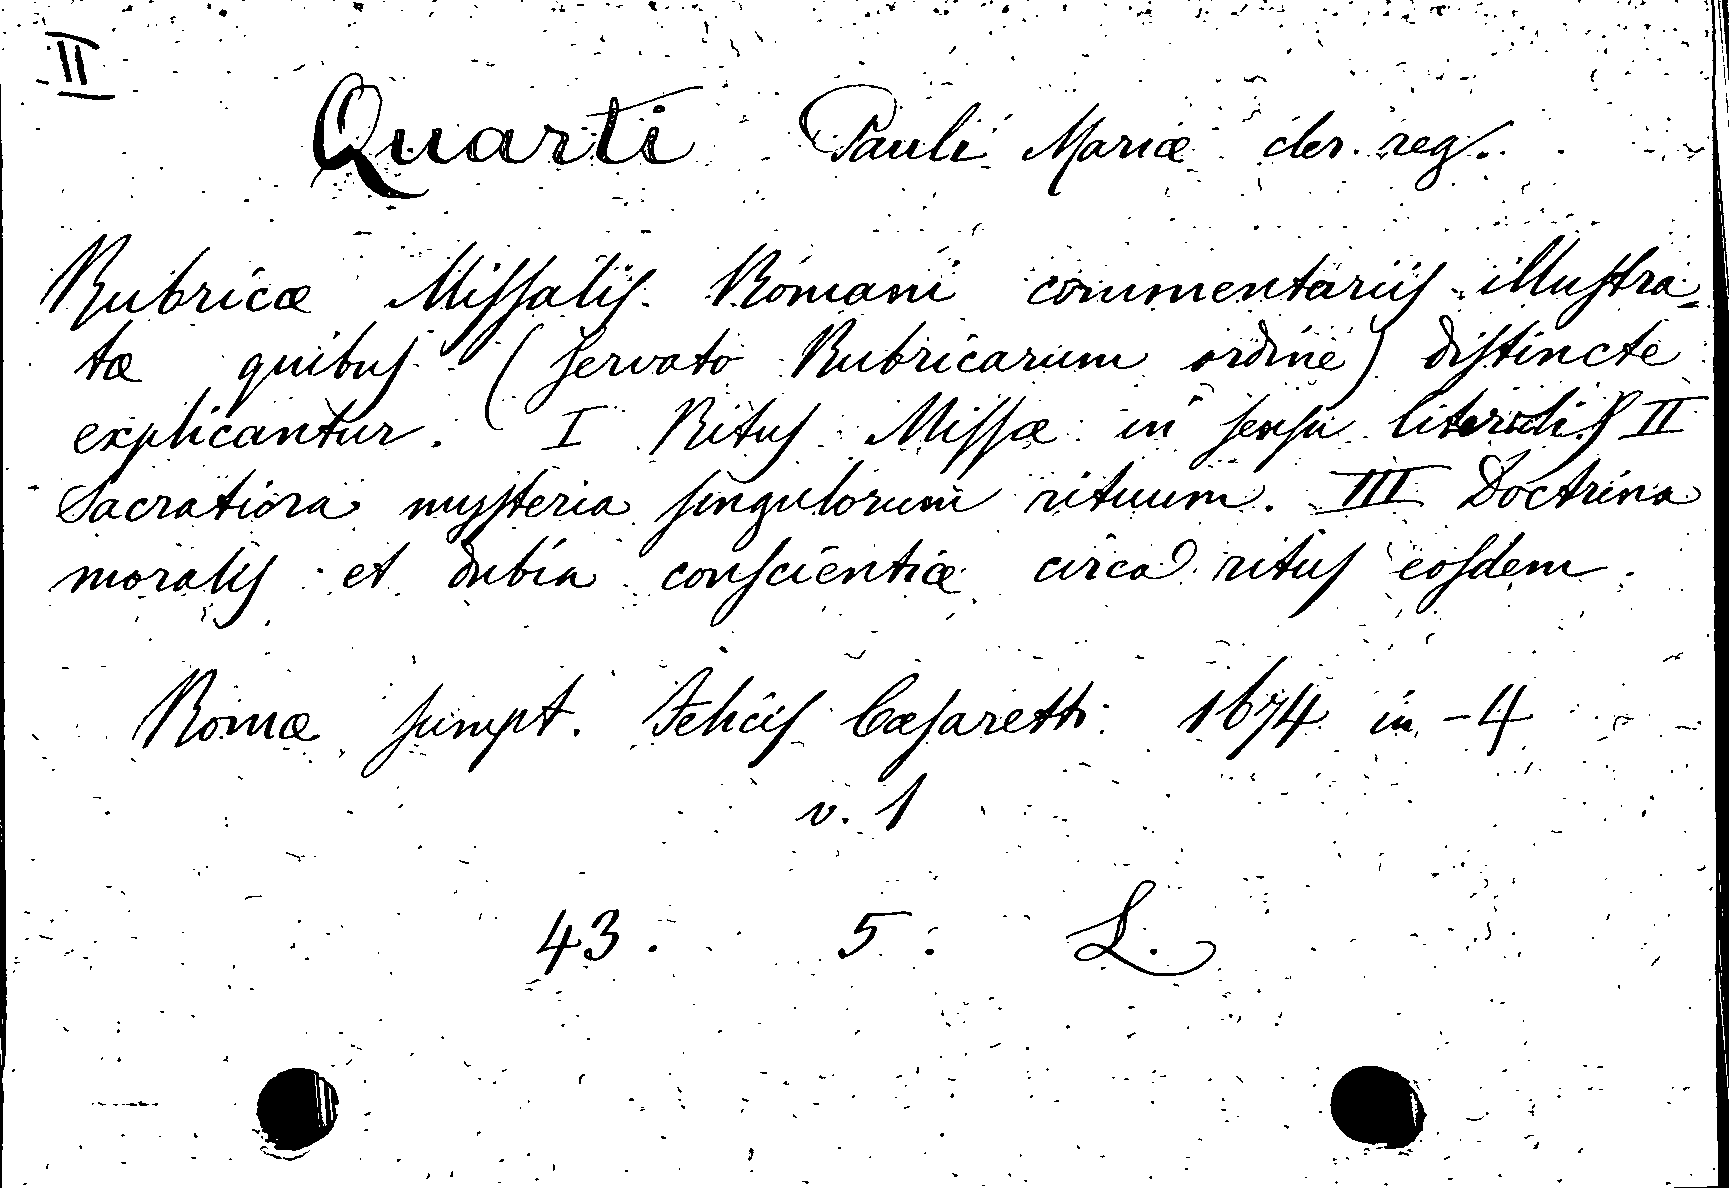 II
Quarti Pauli Mariæ cler. reg.
Rubricæ Miſſaliſ Romani commentariiſ illuſtra-
tæ quibuſ (ſervato Rubricarum ordine) diſtincte
explicantur. I Rituſ Miſſæ in ſenſu literali. II
Sacratiora myſteria ſingulorum rituum. III Doctrina
moraliſ et dubia conſcientiæ circa rituſ eoſdem.
Romæ ſumpt. Feliciſ Cæſaretti 1674 in-4
v. 1
43. 5. L.